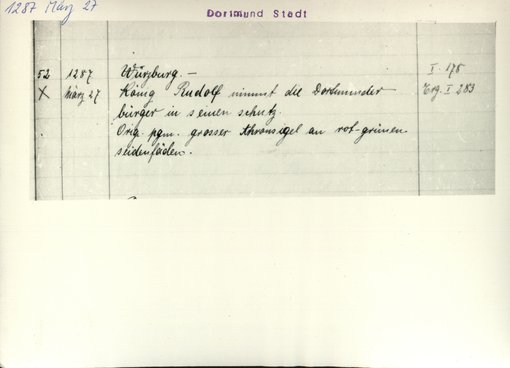 1287 März 27
Dortmund Stadt
52 1287 Würzburg. — I. 175
X März 27 König Rudolf nimmt die Dortmunder Erg. I 283
bürger in seinen schutz.
Orig. pgm. grosser thronsigel an rot-grünen
seidenfäden.